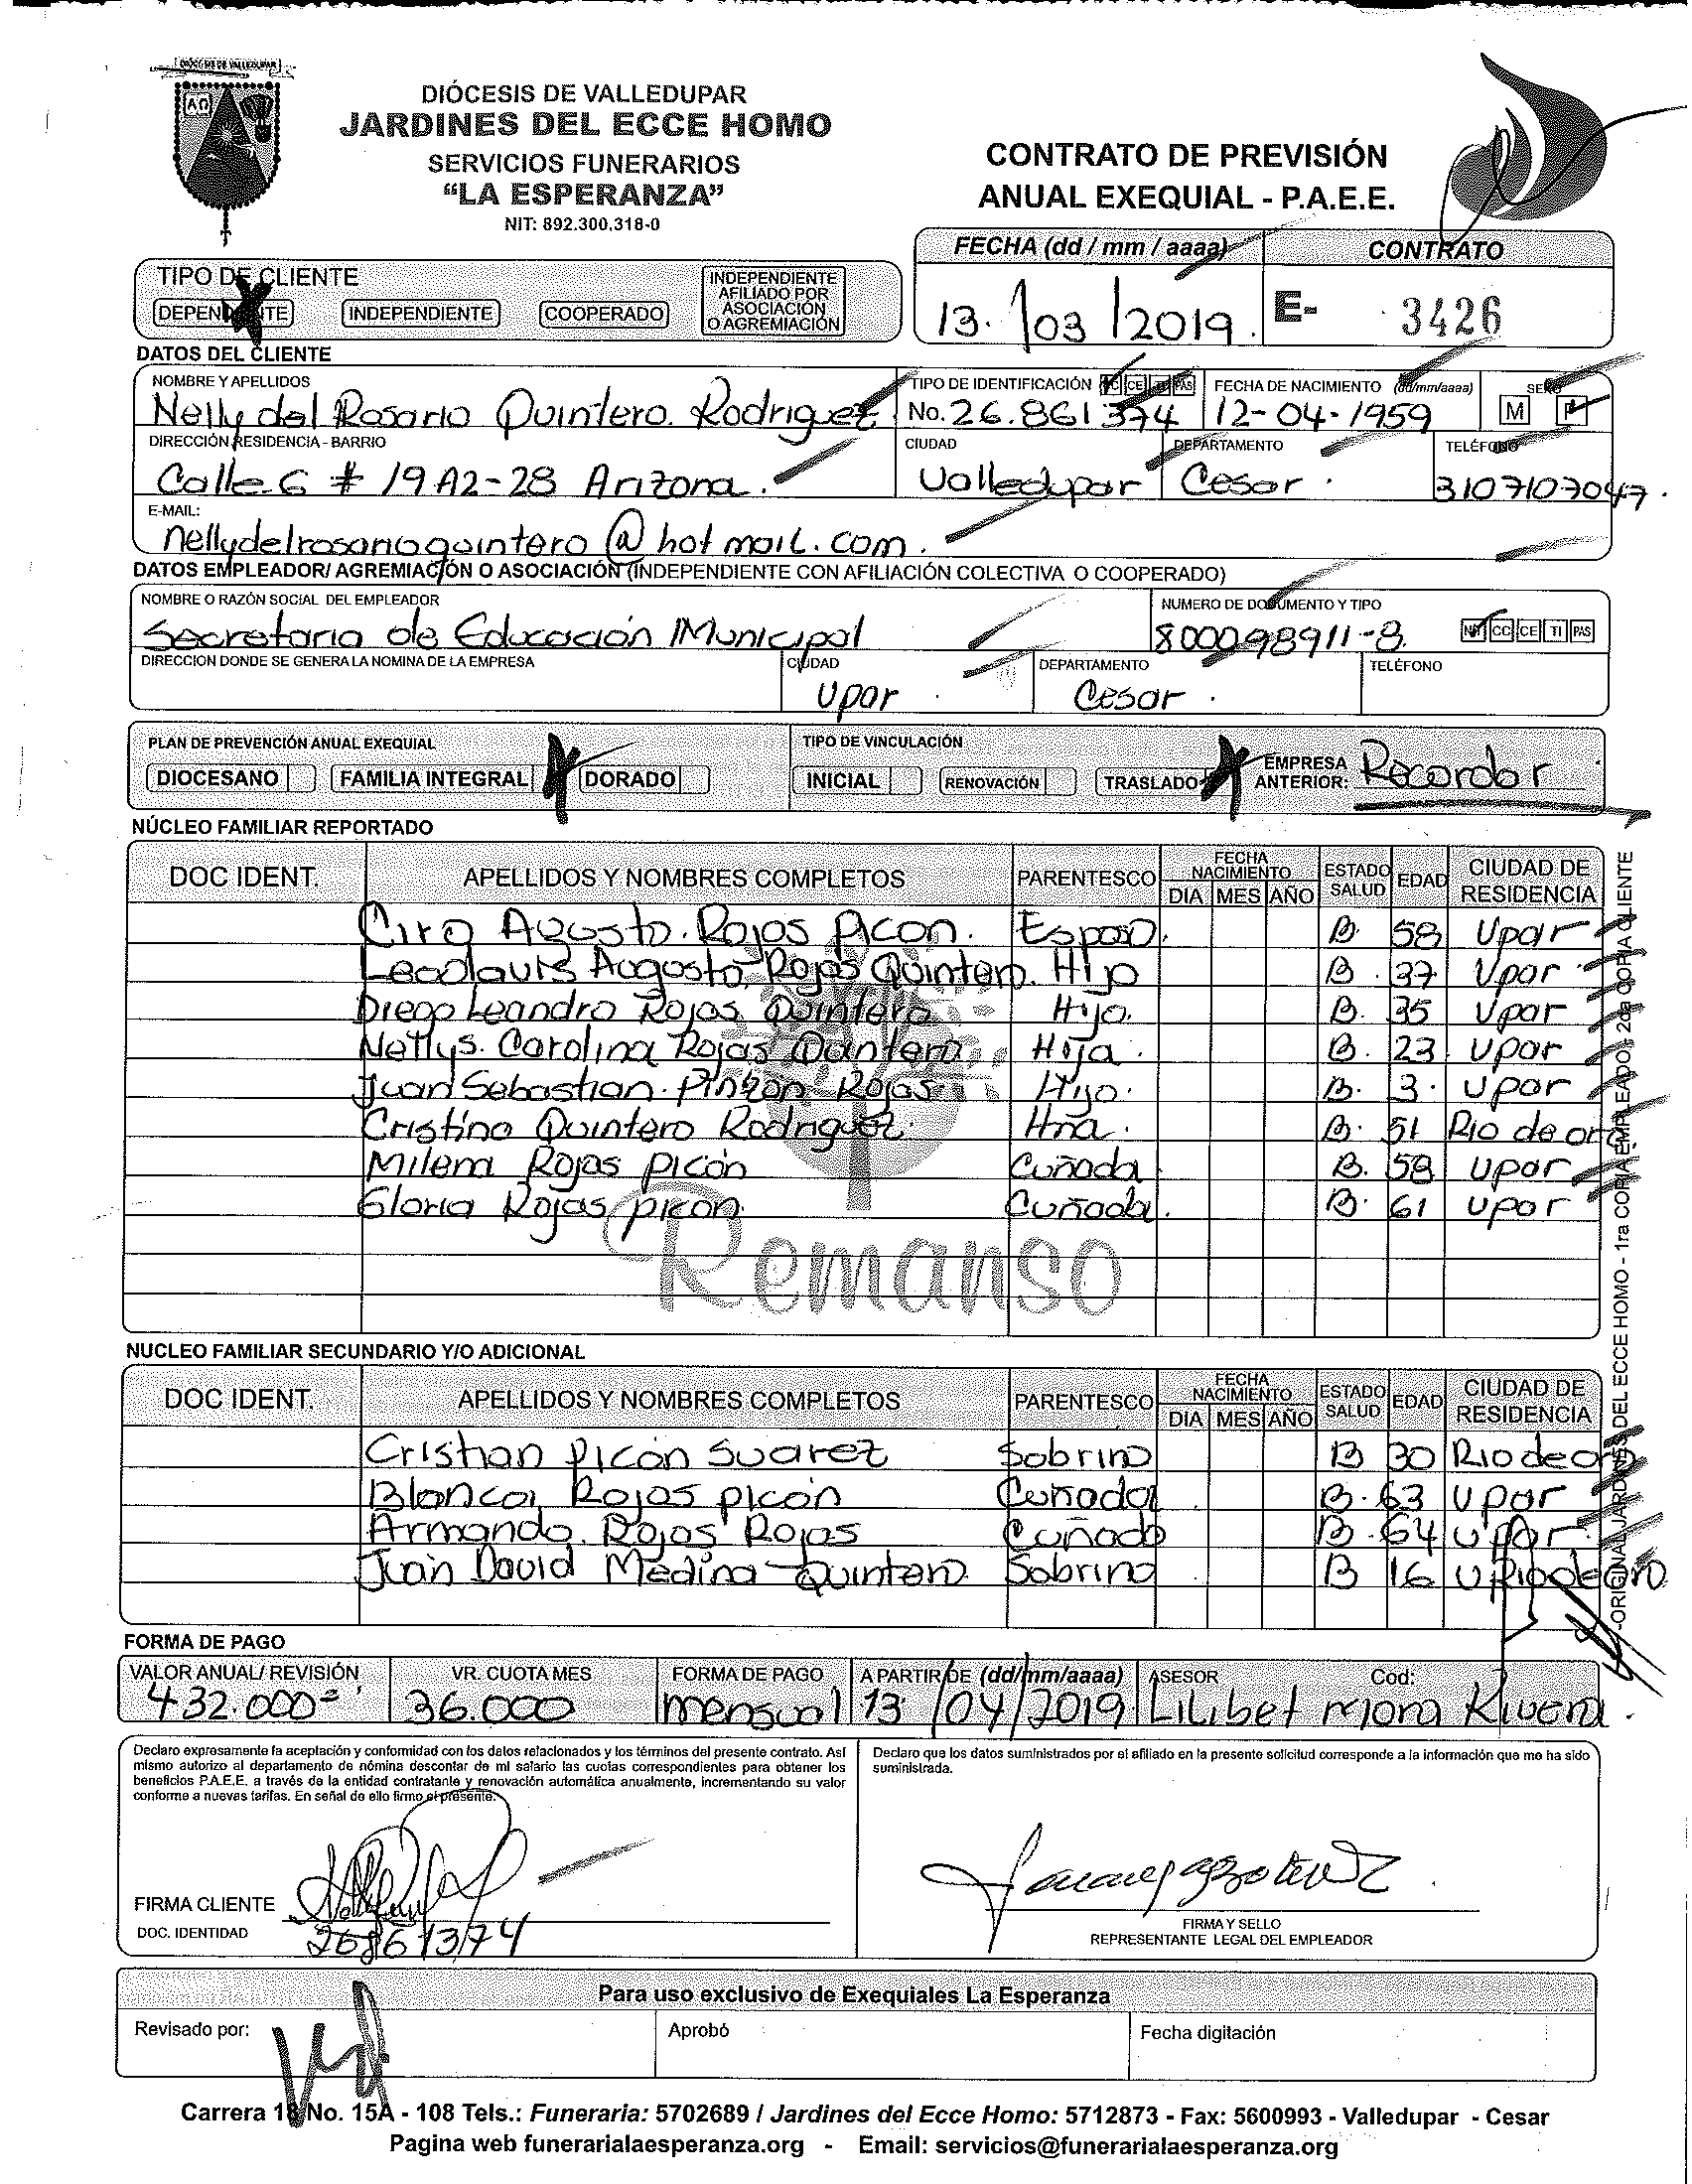 DIÓCESIS DE VALLEDUPAR
DIÓCESIS DE VALLEDUPAR
JARDINES DEL ECCE HOMO
SERVICIOS FUNERARIOS
“LA ESPERANZA”
NIT: 892.300.318-0
CONTRATO DE PREVISIÓN
ANUAL EXEQUIAL - P.A.E.E.
FECHA (dd / mm / aaaa) CONTRATO
13. /03 /2019. E- 3426
TIPO DE CLIENTE
DEPENDIENTE INDEPENDIENTE COOPERADO INDEPENDIENTE AFILIADO POR ASOCIACIÓN O AGREMIACIÓN
DATOS DEL CLIENTE
NOMBRE Y APELLIDOS TIPO DE IDENTIFICACIÓN CC CE TI PAS FECHA DE NACIMIENTO (dd/mm/aaaa) SEXO
Nelly del Rosario Quintero Rodriguez No. 26.861374 12-04-1959 M F
DIRECCIÓN RESIDENCIA - BARRIO CIUDAD DEPARTAMENTO TELÉFONO
Calle 6 # 19A2-28 Arizona. Valledupar Cesar. 3107107047.
E-MAIL:
nellydelrosarioquintero@hotmail.com.
DATOS EMPLEADOR/ AGREMIACIÓN O ASOCIACIÓN (INDEPENDIENTE CON AFILIACIÓN COLECTIVA O COOPERADO)
NOMBRE O RAZÓN SOCIAL DEL EMPLEADOR NUMERO DE DOCUMENTO Y TIPO
Secretaria de Educación Municipal 800098911-8. NIT CC CE TI PAS
DIRECCION DONDE SE GENERA LA NOMINA DE LA EMPRESA CIUDAD DEPARTAMENTO TELÉFONO
Upar Cesar.
PLAN DE PREVENCIÓN ANUAL EXEQUIAL TIPO DE VINCULACIÓN
DIOCESANO FAMILIA INTEGRAL DORADO INICIAL RENOVACIÓN TRASLADO EMPRESA ANTERIOR: Recordar
NÚCLEO FAMILIAR REPORTADO
DOC IDENT. APELLIDOS Y NOMBRES COMPLETOS PARENTESCO FECHA NACIMIENTO DIA MES AÑO ESTADO SALUD EDAD CIUDAD DE RESIDENCIA
Ciro Agusto. Rojas Picon. Esposo. B. 58 Upar
Leodauis Augosto Rojas Quintero. Hijo B. 37 Upar
Diego Leandro Rojas Quintero Hijo. B. 35 Upar
Nellys. Carolina Rojas Quintero Hija. B. 23 Upar
Juan Sebastian. Pinzon Rojas Hijo. B. 3. Upar
Cristina Quintero Rodriguez. Hna. B. 51 Rio de oro.
Milena Rojas picón Cuñada B. 58 Upar
Gloria Rojas picon. Cuñada. B. 61 Upar
Remanso
NUCLEO FAMILIAR SECUNDARIO Y/O ADICIONAL
DOC IDENT. APELLIDOS Y NOMBRES COMPLETOS PARENTESCO FECHA NACIMIENTO DIA MES AÑO ESTADO SALUD EDAD CIUDAD DE RESIDENCIA
Cristian Picón Suarez Sobrino B 30 Rio de oro
Blanca Rojas picón Cuñada B. 63 Upar
Armando. Rojas Rojas Cuñado B. 64 Upar.
Juan David Medina Quintero Sobrino B 16 Rio de oro
-ORIGINAL JARDINES DEL ECCE HOMO - 1ra COPIA EMPLEADOR 2da COPIA CLIENTE
FORMA DE PAGO
VALOR ANUAL/ REVISIÓN VR. CUOTA MES FORMA DE PAGO A PARTIR DE (dd/mm/aaaa) ASESOR Cod:
432.000= 36.000 mensual 13 /04/2019 Lilibet Mora Rivera.
Declaro expresamente la aceptación y conformidad con los datos relacionados y los términos del presente contrato. Así
mismo autorizo al departamento de nómina descontar de mi salario las cuotas correspondientes para obtener los
beneficios P.A.E.E. a través de la entidad contratante y renovación automática anualmente, incrementando su valor
conforme a nuevas tarifas. En señal de ello firmo el presente.
Declaro que los datos suministrados por el afiliado en la presente solicitud corresponde a la información que me ha sido
suministrada.
FIRMA CLIENTE
DOC. IDENTIDAD 26861374
FIRMA Y SELLO
REPRESENTANTE LEGAL DEL EMPLEADOR
Para uso exclusivo de Exequiales La Esperanza
Revisado por: Aprobó Fecha digitación
Carrera 18 No. 15A - 108 Tels.: Funeraria: 5702689 / Jardines del Ecce Homo: 5712873 - Fax: 5600993 - Valledupar - Cesar
Pagina web funerarialaesperanza.org - Email: servicios@funerarialaesperanza.org